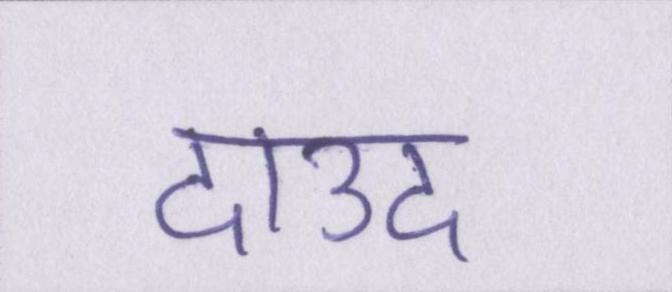 दाउद